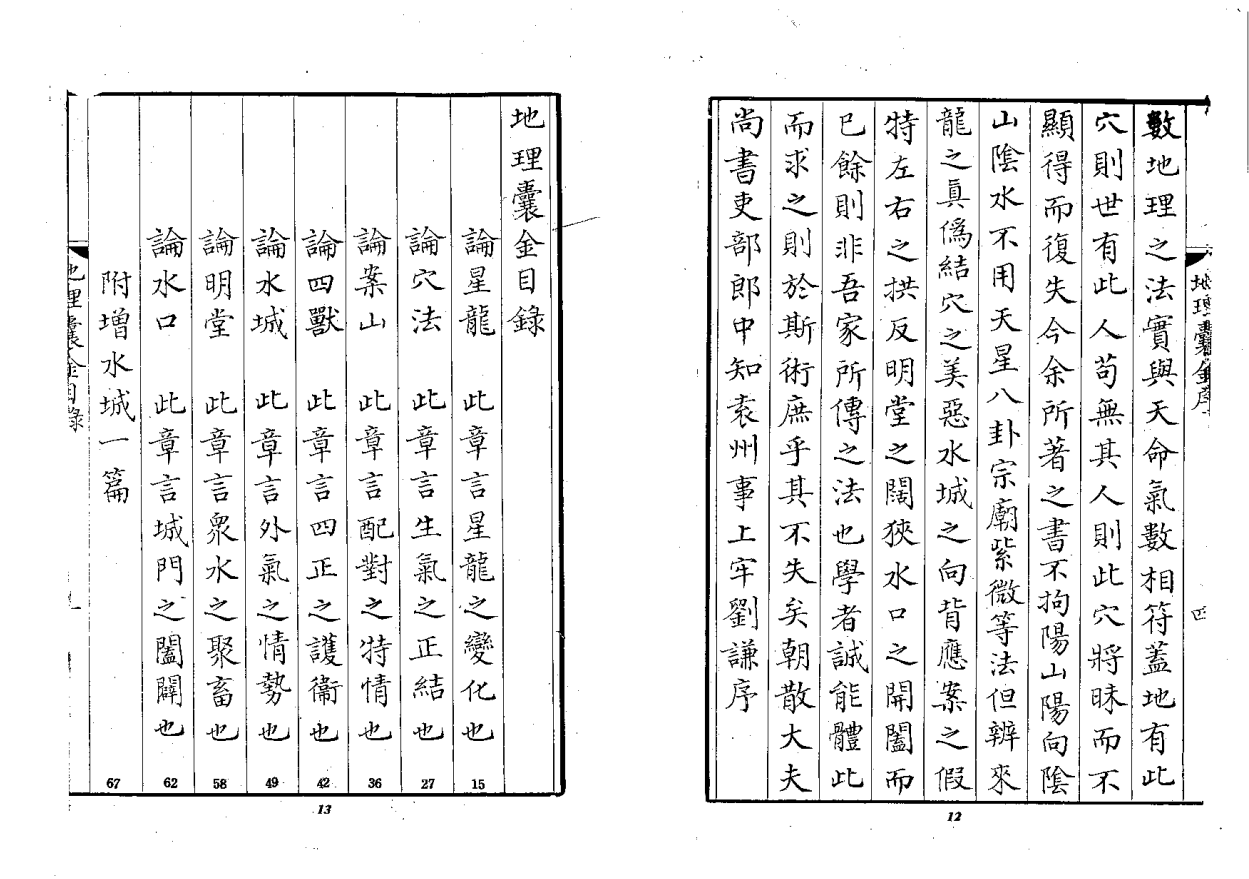 地理囊金序
四
數地理之法實與天命氣數相符蓋地有此
穴則世有此人苟無其人則此穴將昧而不
顯得而復失今余所著之書不拘陽山陽向陰
山陰水不用天星八卦宗廟紫微等法但辨來
龍之眞僞結穴之美惡水城之向背應案之假
特左右之拱反明堂之闊狹水口之開闔而
已餘則非吾家所傳之法也學者誠能體此
而求之則於斯術庶乎其不失矣朝散大夫
尚書吏部郎中知袁州事上牢劉謙序
12
地理囊金目錄
論星龍 此章言星龍之變化也 15
論穴法 此章言生氣之正結也 27
論案山 此章言配對之特情也 36
論四獸 此章言四正之護衞也 42
論水城 此章言外氣之情勢也 49
論明堂 此章言衆水之聚畜也 58
論水口 此章言城門之闔闢也 62
附增水城一篇 67
地理囊金目錄
13